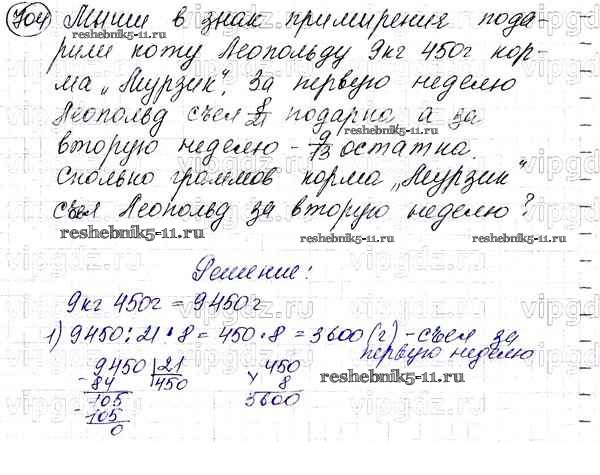 704 Мыши в знак примирения пода-
рили коту Леопольду 9кг 450г кор-
ма „Мурзик". За первую неделю
Леопольд съел 8/21 подарка, а за
вторую неделю - 9/13 остатка.
Сколько граммов корма „Мурзик"
съел Леопольд за вторую неделю?
reshebnik5-11.ru
Решение:
9кг 450г = 9450г
1) 9450:21·8 = 450·8 = 3600 (г) - съел за
первую неделю
9450 21
-84 450
105
-105
0
450
× 8
3600
reshebnik5-11.ru
vipgdz.ru